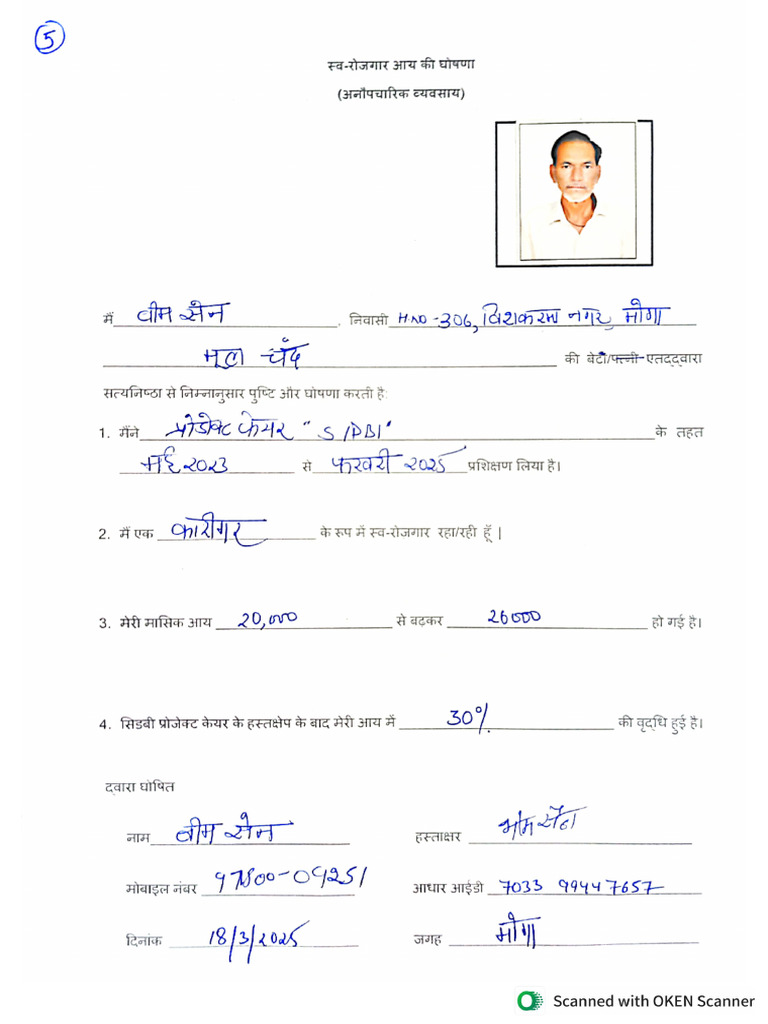 5
स्व-रोजगार आय की घोषणा
(अनौपचारिक व्यवसाय)
मैं बीम सेन, निवासी H.NO-306, विशकरमा नगर, मोगा
मूल चंद की बेटी/पत्नी एतद्द्वारा
सत्यनिष्ठा से निम्नानुसार पुष्टि और घोषणा करती है:
1. मैंने प्रोजेक्ट केयर "SIDBI" के तहत
मई 2023 से फरवरी 2025 प्रशिक्षण लिया है।
2. मैं एक कारीगर के रूप में स्व-रोजगार रहा/रही हूँ |
3. मेरी मासिक आय 20,000 से बढकर 26000 हो गई है।
4. सिडबी प्रोजेक्ट केयर के हस्तक्षेप के बाद मेरी आय में 30% की वृद्धि हुई है।
द्वारा घोषित
नाम बीम सेन हस्ताक्षर भीम सैन
मोबाइल नंबर 97800-04251 आधार आईडी 7033 9944 7657
दिनांक 18/3/2025 जगह मोगा
Scanned with OKEN Scanner